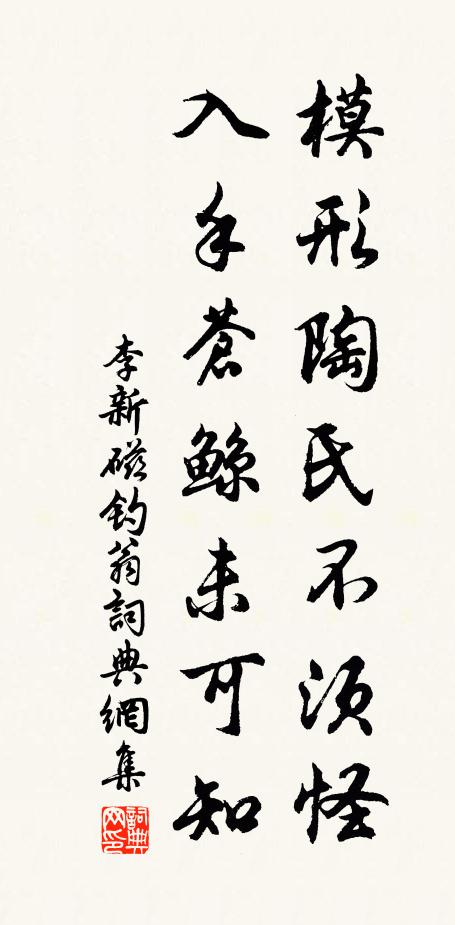 模形陶氏不須怪
入手蒼鯨未可知
李新磁釣翁詞典網集
詞典网印